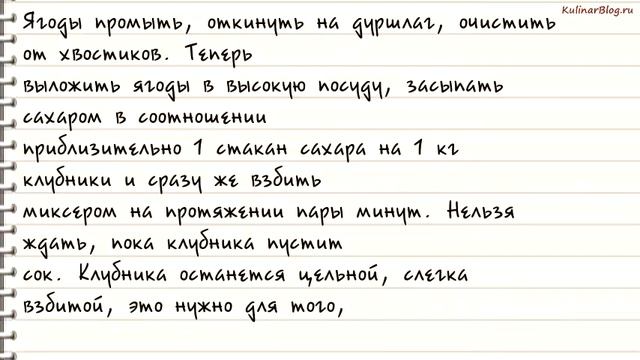 KulinarBlog.ru
Ягоды промыть, откинуть на дуршлаг, очистить
от хвостиков. Теперь
выложить ягоды в высокую посуду, засыпать
сахаром в соотношении
приблизительно 1 стакан сахара на 1 кг
клубники и сразу же взбить
миксером на протяжении пары минут. Нельзя
ждать, пока клубника пустит
сок. Клубника останется цельной, слегка
взбитой, это нужно для того,